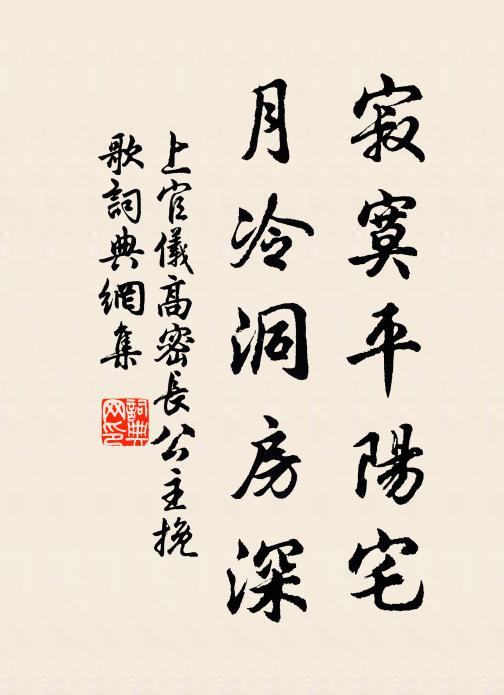 寂寞平陽宅
月冷洞房深
上官儀高密長公主挽
歌詞典網集
詞典
网印